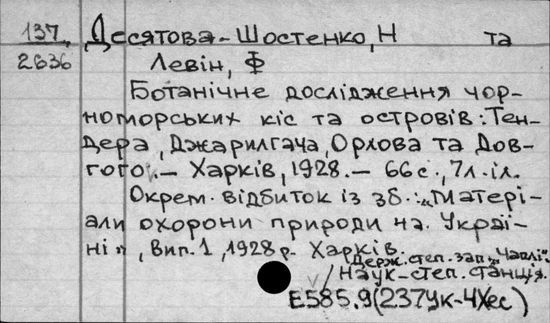 137, Десятова-Шостенко, Н та
2636 Левін, Ф
Ботанічне дослідження чор-
номорських кіс та островів: Тен-
дера, Джарилгача, Орлова та Дов-
гого. — Харків, 1928. — 66 с., 7л. іл.
Окрем. відбиток із зб.: „Матері-
али охорони природи на Украї-
ні", Вип. 1, 1928 р. Харків.
Держ. степ. зап. „Чаплі".
Наук-степ. станція.
Е585.9(237Ук-4Хес)